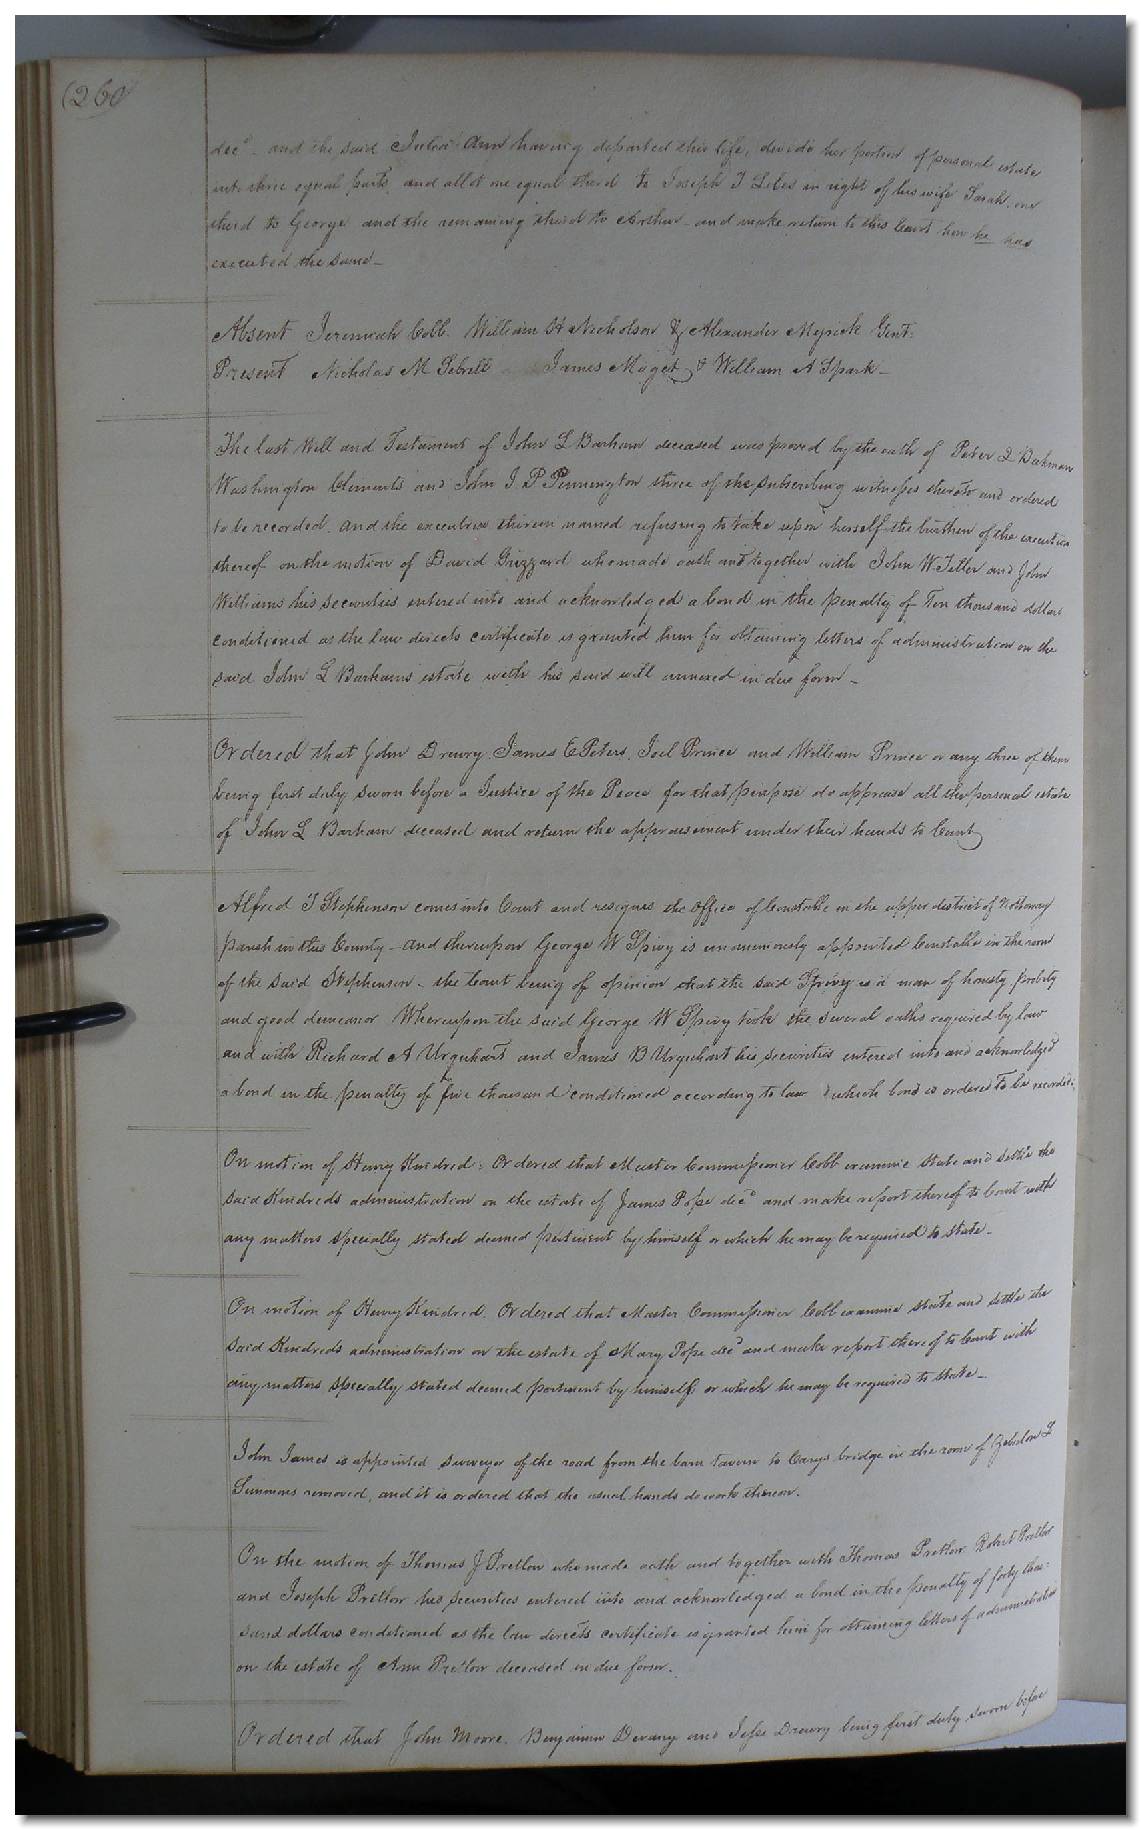 (260)
decd. and the said Julia Ann having departed this life, divide her portion of personal estate
into three equal parts, and allot one equal third to Joseph T Liles in right of his wife Sarah, one
third to George and the remaining third to Arthur - and make return to this Court how he has
executed the same -
Absent Jeremiah Cobb. William H Nicholson & Alexander Myrick Gent.
Present Nicholas M Sebrell James Maget & William A Spark -
The last Will and Testament of John L Barham deceased was proved by the oath of Peter
Washington Clements and John J. P Pennington three of the subscribing witnesses thereto and ordered
to be recorded. and the executrix therein named refusing to take upon herself the burthen of the execution
thereof on the motion of David Grizzard who made oath and together with John W Teller and John
Williams his securities entered into and acknowledged a bond in the penalty of Ten thousand dollars
conditioned as the law directs certificate is granted him for obtaining letters of administration on the
said John L Barhams estate with his said will annexed in due form -
Ordered that John Drewry, James E Peters, Joel Prince and William Prince or any three of them
being first duly sworn before a Justice of the Peace for that purpose do appraise all the personal estate
of John L Barham deceased and return the appraisement under their hands to Court
Alfred T Stephenson comes into Court and resigns the Office of Constable in the upper district of Nottoway
parish in this County - and thereupon George W Spivy is unanimously appointed Constable in the room
of the said Stephenson - the Court being of opinion that the said Spivey is a man of honesty probity
and good demeanor Whereupon the said George W Spivy took the several oaths required by law
and with Richard A Urquhart and James B Urquhart his securities entered into and acknowledged
a bond in the penalty of five thousand conditioned according to law which bond is ordered to be recorded.
On motion of Henry Kindred: Ordered that Master Commissioner Cobb examine state and settle the
said Kindreds administration on the estate of James Pope decd and make report thereof to Court with
any matters specially stated deemed pertinent by himself or which he may be required to state -
On motion of Henry Kindred. Ordered that Master Commissioner Cobb examine state and settle the
said Kindreds administration on the estate of Mary Pope decd and make report thereof to Court with
any matters specially stated deemed pertinent by himself or which he may be required to state -
John James is appointed surveyor of the road from the barn tavern to Carys bridge in the room of Zebulon L
Simmons removed, and it is ordered that the usual hands do work thereon.
On the motion of Thomas J Pretlow who made oath and together with Thomas Pretlow Robert Pretlow
and Joseph Pretlow his securities entered into and acknowledged a bond in the penalty of forty thou-
sand dollars conditioned as the law directs certificate is granted him for obtaining letters of administration
on the estate of Ann Pretlow deceased in due form.
Ordered that John Moore. Benjamin Devany and Jesse Drewry being first duly sworn before